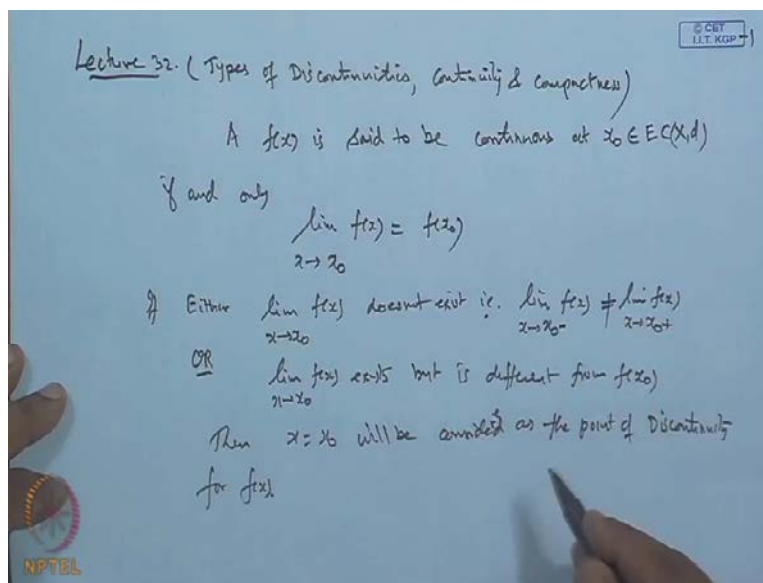 © CET
I.I.T. KGP -1
Lecture 32. (Types of Discontinuities, Continuity & Compactness)
A f(x) is said to be continuous at x₀ ∈ E ⊂ (X,d)
if and only
lim f(x) = f(x₀)
x→x₀
If Either lim f(x) doesn't exist i.e. lim f(x) ≠ lim f(x)
x→x₀ x→x₀- x→x₀+
OR lim f(x) exists but is different from f(x₀)
x→x₀
Then x = x₀ will be considered as the point of Discontinuity
for f(x).
NPTEL